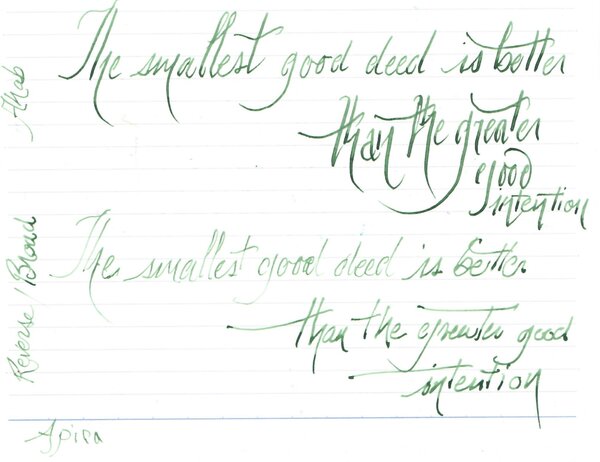 Ahab
The smallest good deed is better
than the greater
good
intention
Reverse/Broad
The smallest good deed is better
than the greater good
intention